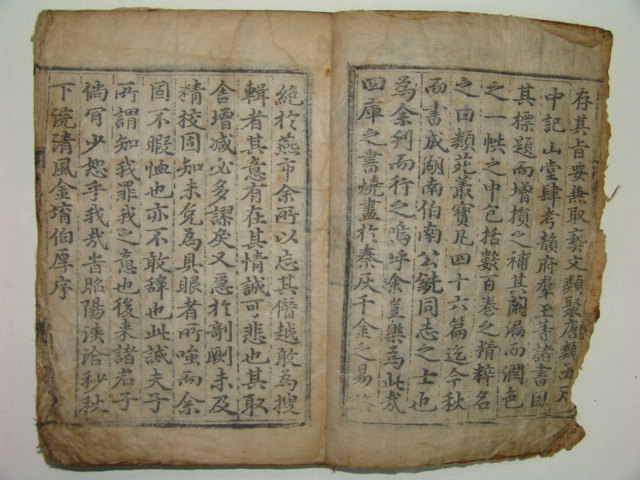 存其旨要兼取藝文類聚唐類函天
中記山堂肆考韻府羣玉等諸書因
其標題而增損之補其闕漏而潤色
之一帙之中包括數百卷之精粹名
之曰類苑叢寶凡四十六篇迄今秋
而書成湖南伯南公銑同志之士也
為余刋而行之嗚呼余豈樂為此㢤
四庫之書燒盡於秦灰千金之易
絕於燕市余所以忘其僭越敢為搜
輯者其意有在其情誠可悲也其取
舍增减必多謬矣又急於剞劂未及
精校固知未免為具眼者所嗤而余
固不暇恤也亦不敢辭也此誠夫子
所謂知我罪我之意也後来諸君子
倘有少恕乎我㢤旹昭陽淡洽杪秋
下浣清風金堉伯厚序